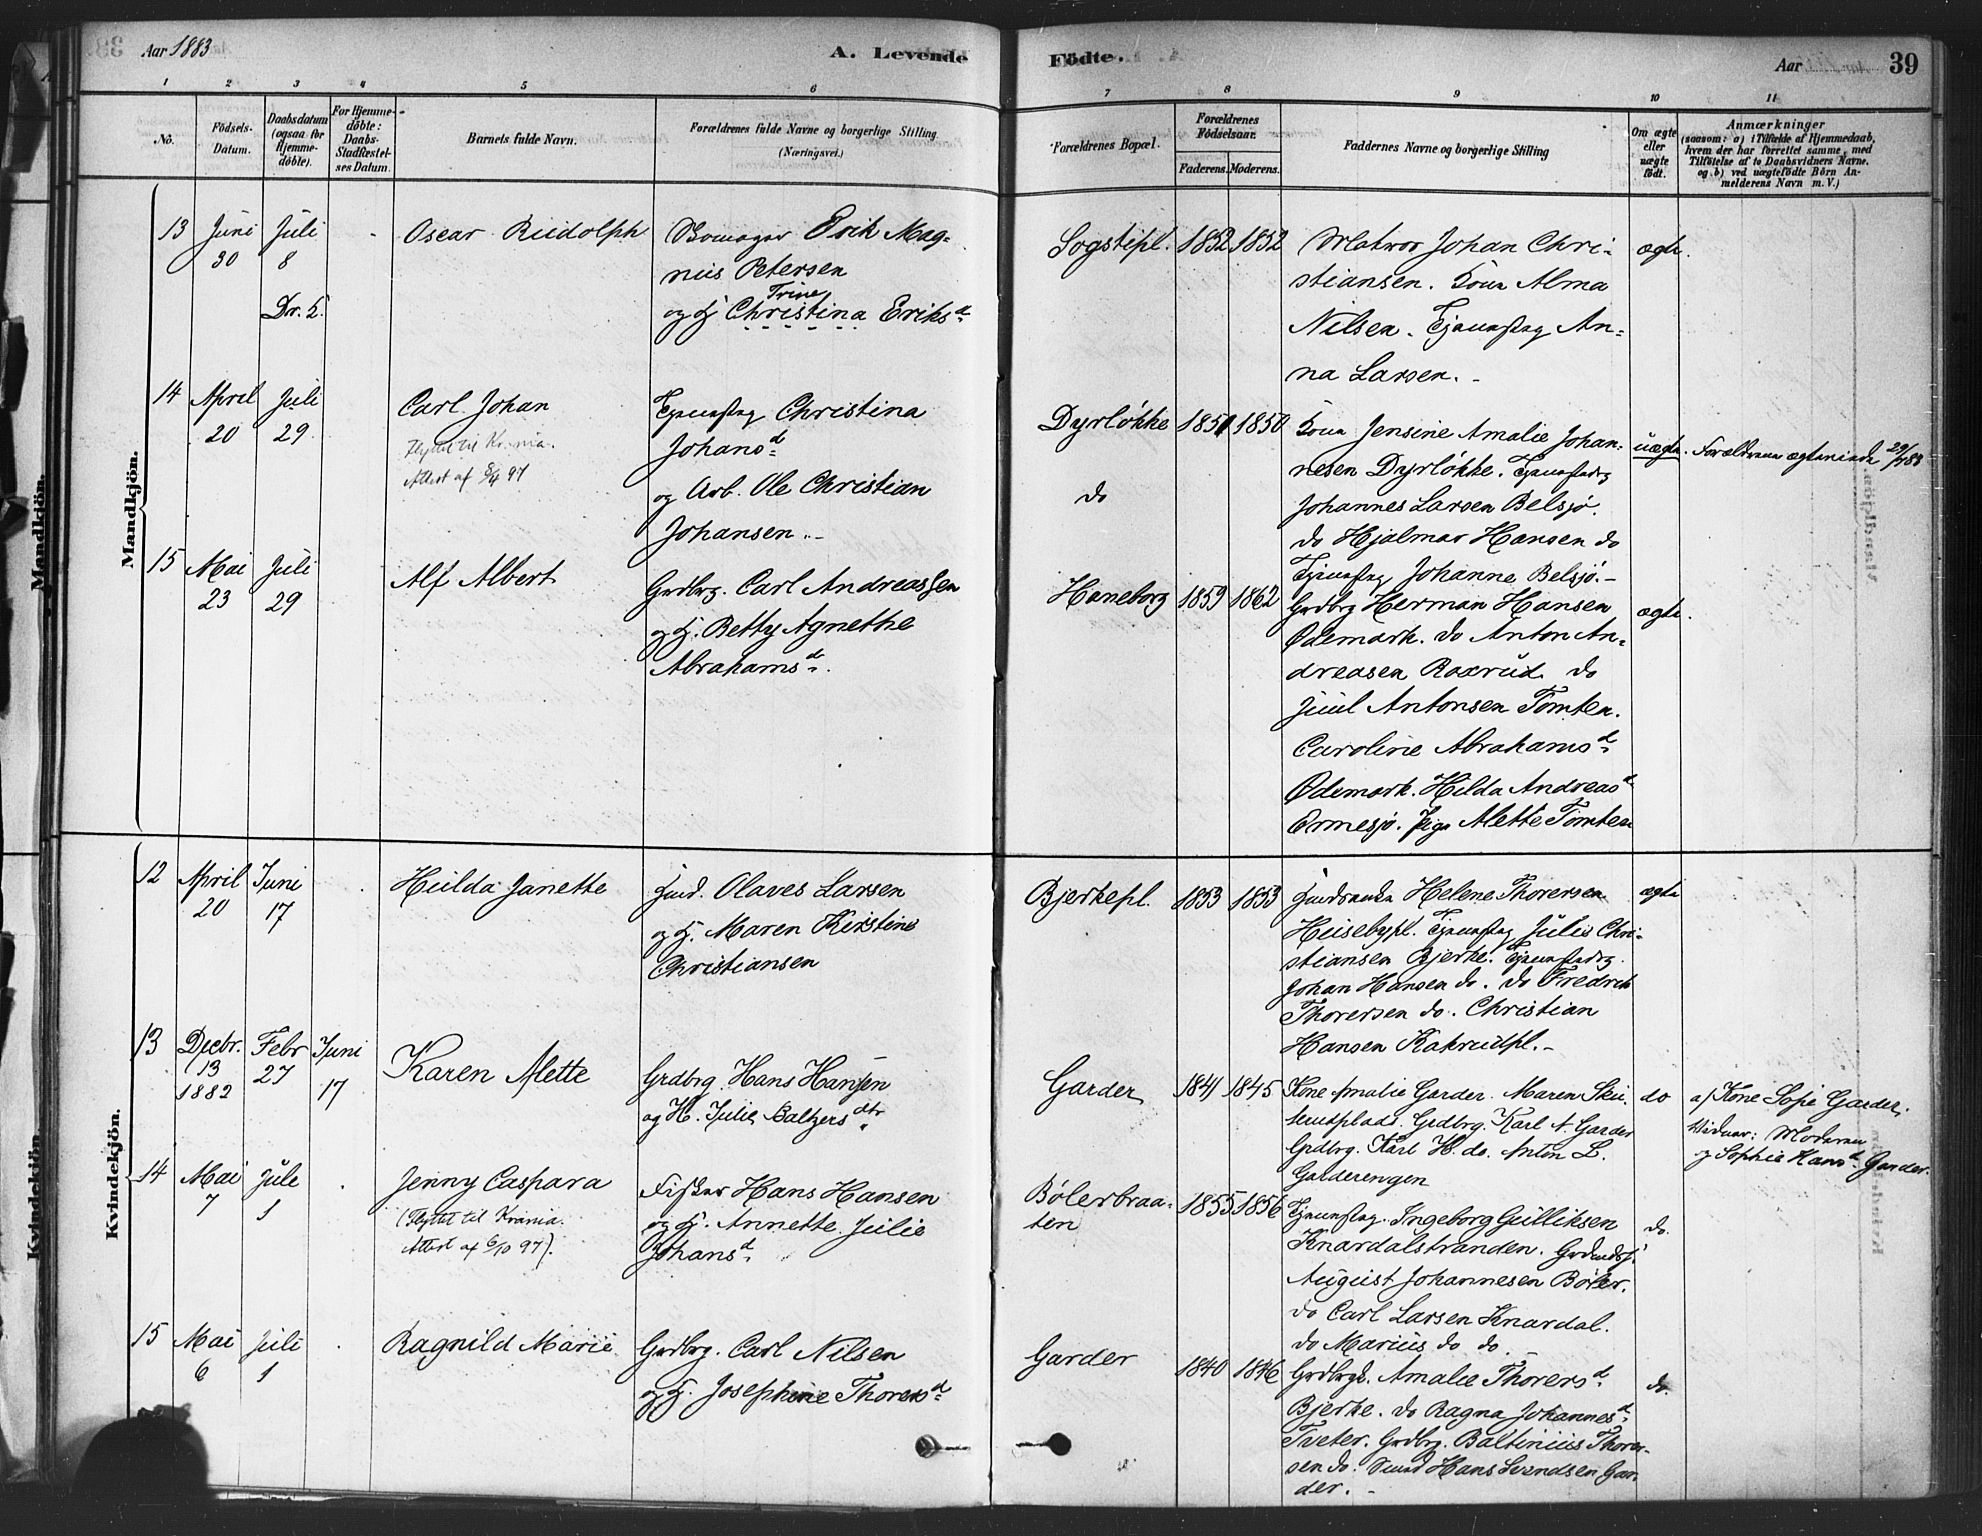 Aar 1883
A. Levende
Fødte.
Aar
39
1
2
3
4
5
6
7
8
9
10
11
No.
Fødsels-
Datum.
Daabsdatum
(ogsaa for
Hjemme-
døbte).
For Hjemme-
døbte:
Daabs-
Stadfæstel-
ses Datum.
Barnets fulde Navn.
Forældrenes fulde Navne og borgerlige Stilling
(Næringsvei.)
Forældrenes Bopæl.
Forældrenes
Fødselsaar.
Faderens.
Moderens.
Faddernes Navne og borgerlige Stilling
Om ægte
eller
uægte
født.
Anmærkninger
(saasom: a) i Tilfælde af Hjemmedaab,
hvem der har forrettet samme, med
Tilføielse af to Daabsvidners Navne.
og b) ved uægtefødte Børn An-
melderens Navn m. V.)
Mandkjön.
13
Juni
30
Juli
8
Dr. K.
Oscar Rudolph
Erik Mag-
nus Petersen
Trine
og H Christina Eriksd
Sogstipl.
1852
1852
Johan Chri-
stiansen. Kone Alma
Nilsen. Tjenestpg An-
na Larsen.
ægte.
14
April
20
Juli
29
Carl Johan
Flyttet til Kr.ania.
Attest af 5/4 97
Tjenestpg Christina
Johansd
og Arb. Ole Christian
Johansen
Dyrløkke
do
1851
1850
Kone Jensine Amalie Johan-
nesen Dyrløkke. Tjenestdrg
Johannes Larsen Belsjø.
do Hjalmar Hansen do
Tjenestpg Johanne Belsjø.
uægte.
Forældrene ægteviede 29/7 83
15
Mai
23
Juli
29
Alf Albert
Grdbrg. Carl Andreassen
og H. Betty Agnethe
Abrahamsd.
Haneborg
1859
1862
Grdbrg Herman Hansen
Ødemark. do Anton An-
dreasen Roxrud do
Juul Antonsen Tomten.
Caroline Abrahamsd
Ødemark. Hilda Andreasd
Ermesjø. Pige Alette Tomten
ægte.
Kvindekjön.
12
April
20
Juni
17
Hulda Janette
Inds. Olaves Larsen
og H. Maren Kirstine
Christiansen
Bjerkepl.
1853
1853
Helene Thoresen
Heisebypl. Tjenestpg Julie Chri-
stiansen Bjerke. Tjenestdrg
Johan Hansen do. do Fredrik
Thoresen do. Christian
Hansen Kakrudpl.
ægte
13
Decbr.
13
1882
Febr
27
Juni
17
Karen Alette
Grdbrg. Hans Hansen
og H. Julie Baltzersdtr
Garder
1841
1845
Kone Amalie Garder. Maren Ski-
Grdbrg. Karl A. Garder
Grdbrg. Karl H. do. Anton L.
Garderengen
do
a/ Kone Sofie Garder.
Vidner: Moderen
og Sophie Hansd Garder.
14
Mai
7
Juli
1
Jenny Caspara
(Flyttet til Krania.
Attest af 6/10 97).
Fisker Hans Hansen
og H. Annette Julie
Johansd
Bølerbraa-
ten
1855
1856
Tjenestpg. Ingeborg Gulliksen
Knardalstranden.
August Johannesen Bøler.
do Carl Larsen Knardal.
do Marius do do.
do.
15
Mai
6
Juli
1
Ragnild Marie
Grdbrg. Carl Nilsen
og H. Josephine Thoresd
Garder
1840
1846
Amalie Thorersd
Bjerke. do Ragna Johannesd
Tveter. Grdbrg. Baltinius Thorer-
sen do. Hans Svendsen Gar-
der.
do.